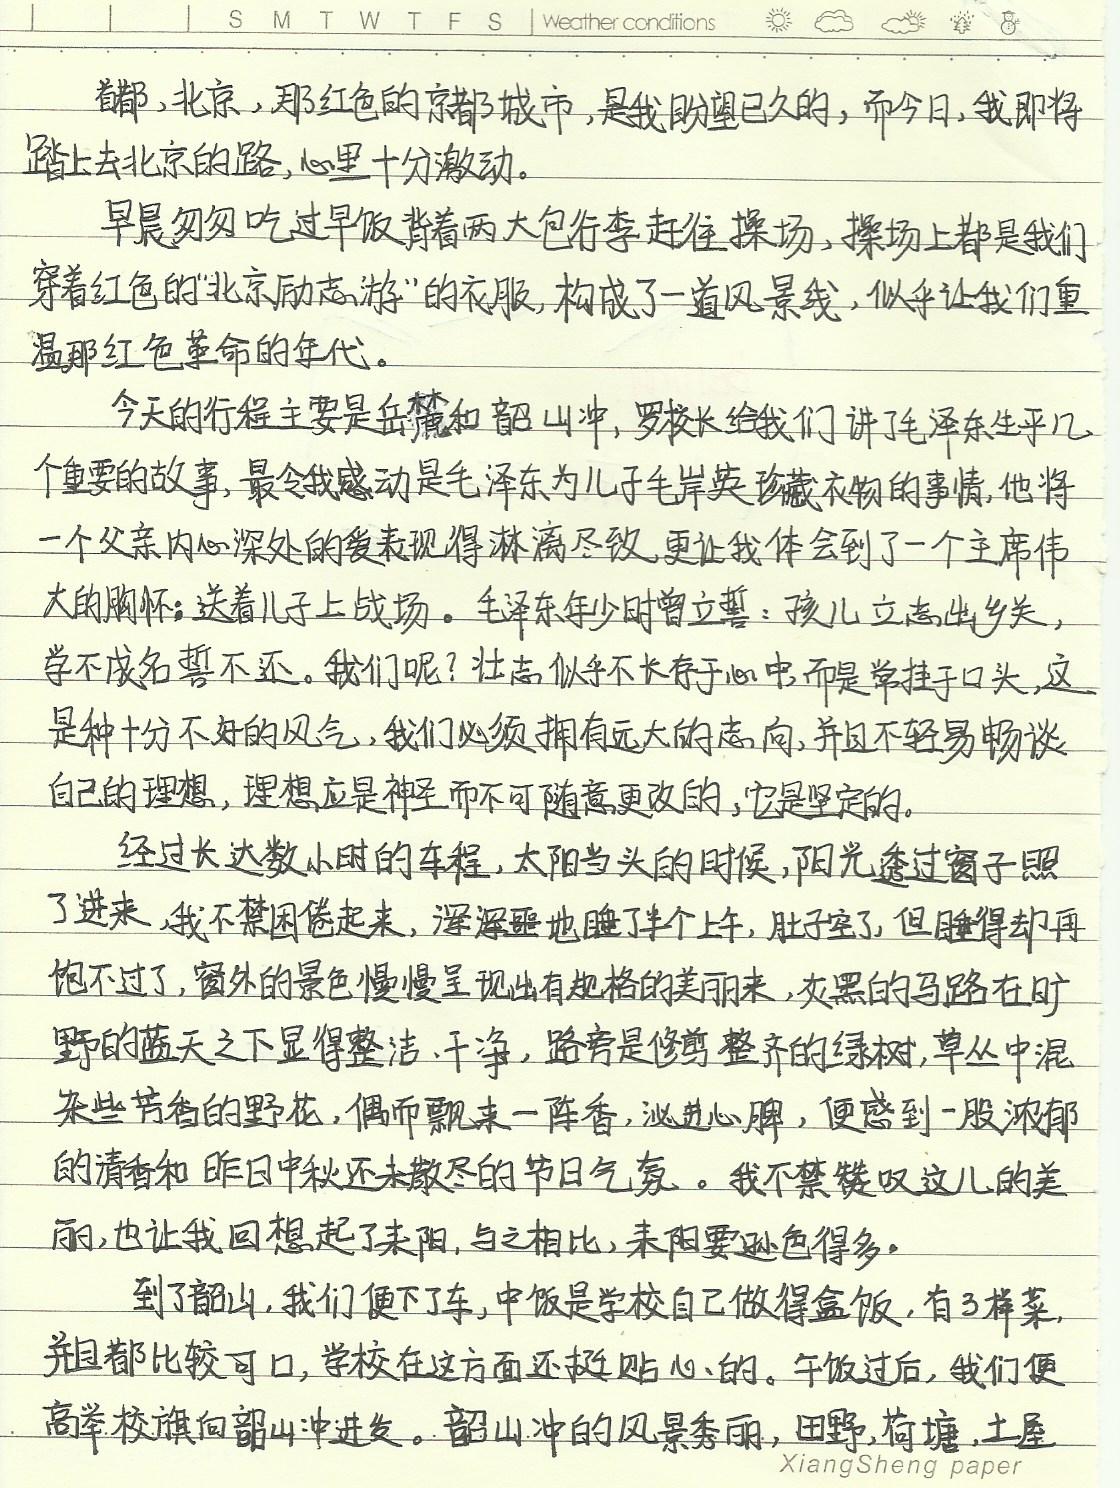 S M T W T F S Weather conditions
首都,北京,那红色的京都城市,是我盼望已久的,而今日,我即将
踏上去北京的路,心里十分激动。
早晨匆匆吃过早饭背着两大包行李赶往操场,操场上都是我们
穿着红色的“北京励志游”的衣服,构成了一道风景线,似乎让我们重
温那红色革命的年代。
今天的行程主要是岳麓和韶山冲,罗校长给我们讲了毛泽东生平几
个重要的故事,最令我感动是毛泽东为儿子毛岸英珍藏衣物的事情,他将
一个父亲内心深处的爱表现得淋漓尽致,更让我体会到了一个主席伟
大的胸怀:送着儿子上战场。毛泽东年少时曾立誓:孩儿立志出乡关,
学不成名誓不还。我们呢?壮志似乎不长存于心中,而是常挂于口头,这
是种十分不好的风气,我们必须拥有远大的志向,并且不轻易畅谈
自己的理想,理想应是神圣而不可随意更改的,它是坚定的。
经过长达数小时的车程,太阳当头的时候,阳光透过窗子照
了进来,我不禁困倦起来,浑浑噩地睡了半个上午,肚子空了,但睡得却再
饱不过了,窗外的景色慢慢呈现出有规格的美丽来,灰黑的马路在旷
野的蓝天之下显得整洁、干净,路旁是修剪整齐的绿树,草丛中混
杂些芳香的野花,偶而飘来一阵香,沁进心脾,便感到一股浓郁
的清香和昨日中秋还未散尽的节日气氛。我不禁赞叹这儿的美
丽,也让我回想起了耒阳,与之相比,耒阳要逊色得多。
到了韶山,我们便下了车,中饭是学校自己做得盒饭,有3样菜,
并且都比较可口,学校在这方面还挺贴心的。午饭过后,我们便
高举校旗向韶山冲进发。韶山冲的风景秀丽,田野,荷塘,土屋
XiangSheng paper